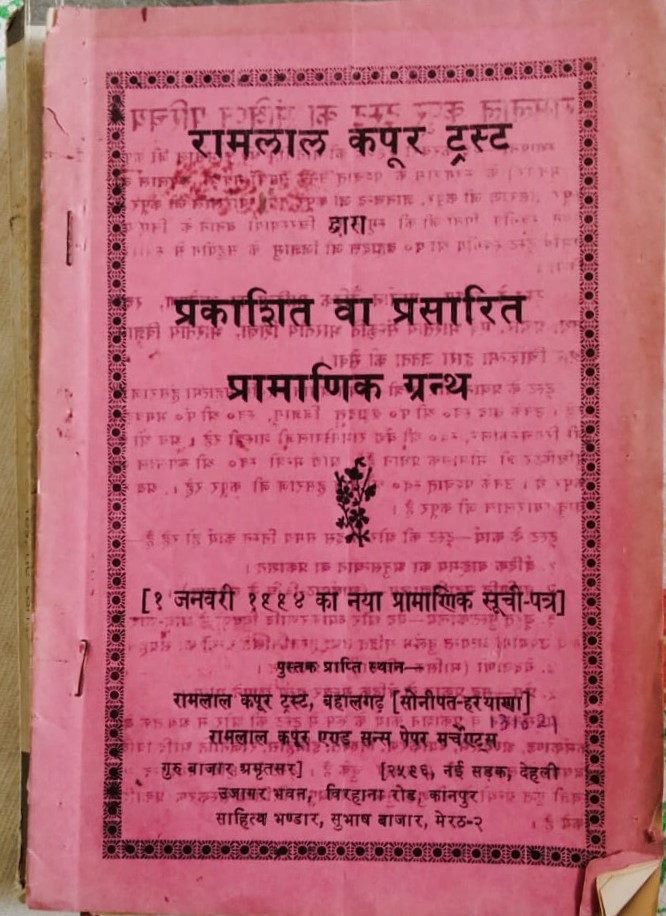 रामलाल कपूर ट्रस्ट
द्वारा
प्रकाशित वा प्रसारित
प्रामाणिक ग्रन्थ
[१ जनवरी १९९४ का नया प्रामाणिक सूची-पत्र]
पुस्तक प्राप्ति स्थान—
रामलाल कपूर ट्रस्ट, बहालगढ़ [सोनीपत-हरयाणा]
रामलाल कपूर एण्ड सन्स पेपर मर्चेण्ट्स
गुरु बाजार अमृतसर] [२५९६, नई सड़क, देहली
उजागर भवन, बिरहाना रोड, कानपुर
साहित्य भण्डार, सुभाष बाजार, मेरठ-२